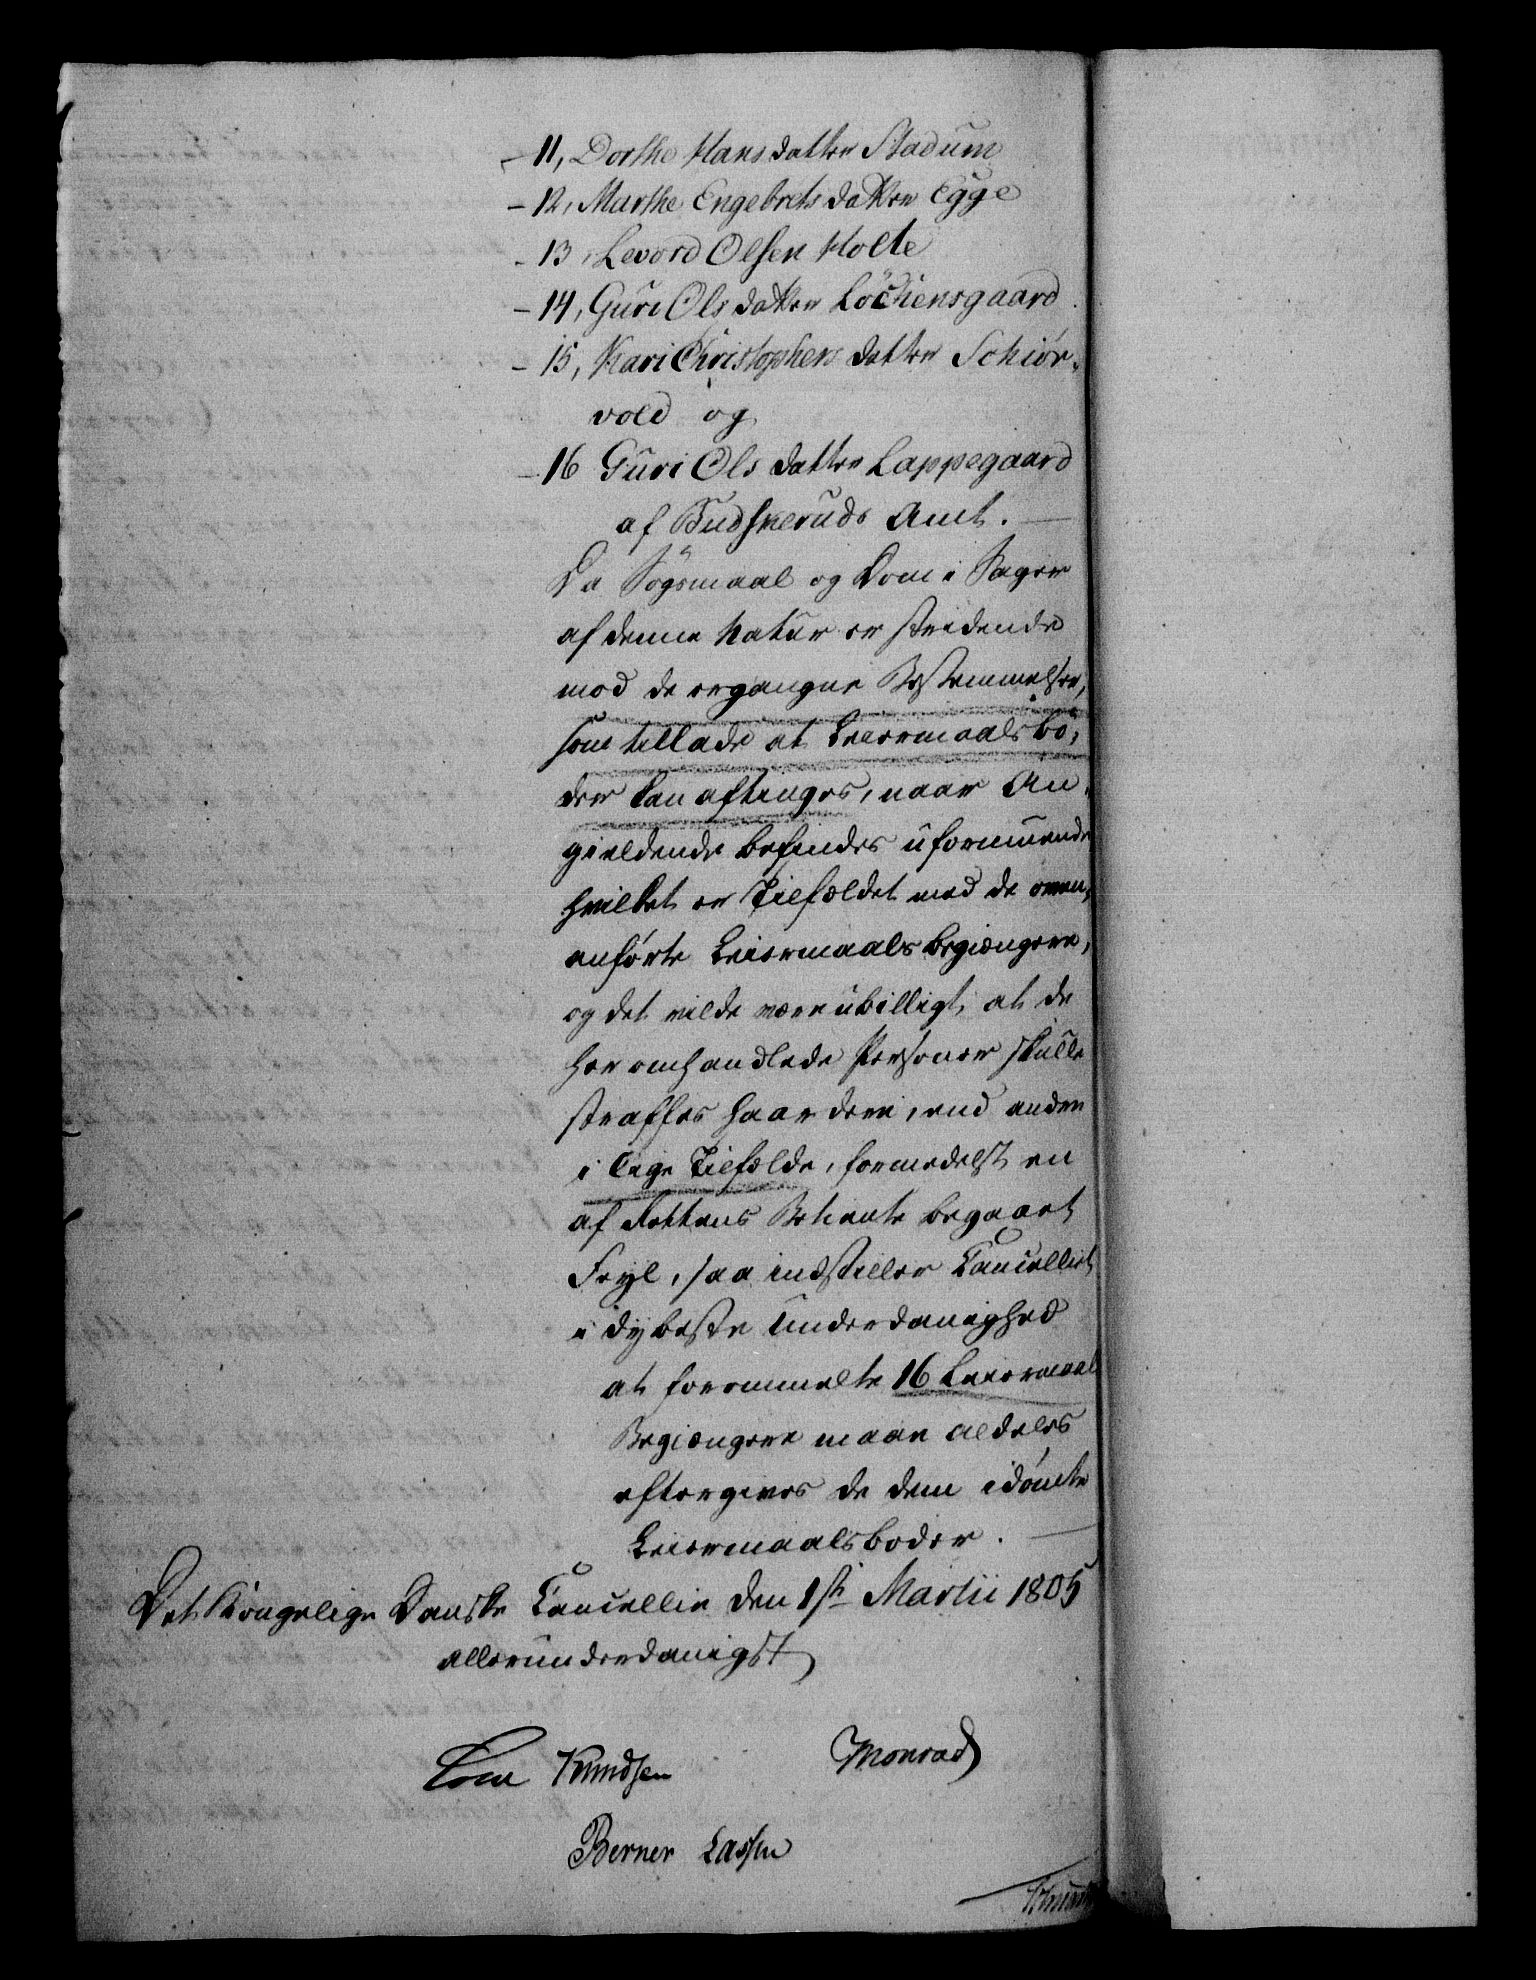 - 11, Dorthe Hansdatter Stadum
- 12, Marthe Engebretsdatter Egge
- 13, Levord Olsen Holte
- 14, Guri Olsdatter Löchensgaard
- 15, Kari Christophersdatter Schiör-
vold og
- 16 Guri Olsdatter Lappegaard
af Budskeruds Amt. —
Da Søgsmaal og Dom i Sager
af denne Natur er stridende
mod de ergangne Bestemmelser,
som tillade at Leiermaalsbø-
der kan aftinges, naar An-
gieldende befindes uformuende
hvilket er Tilfældet med de oven-
anførte Leiermaalsbegiængere,
og det vilde være ubilligt, at de
her omhandlede Personer skulle
straffes haardere, end andre
i lige Tilfælde, formedelst en
af Rettens Betiente begaaet
Feyl, saa indstiller Cancelliet
i dybeste Underdanighed
at forommeldte 16 Leiermaals
Begiængere maae aldeles
eftergives de dem idømte
Leiermaalsbøder. —
Det Kongelige Danske Cancellie den 1ste Martii 1805
allerunderdanigst
Knudsen Monrad
Berner Lassen